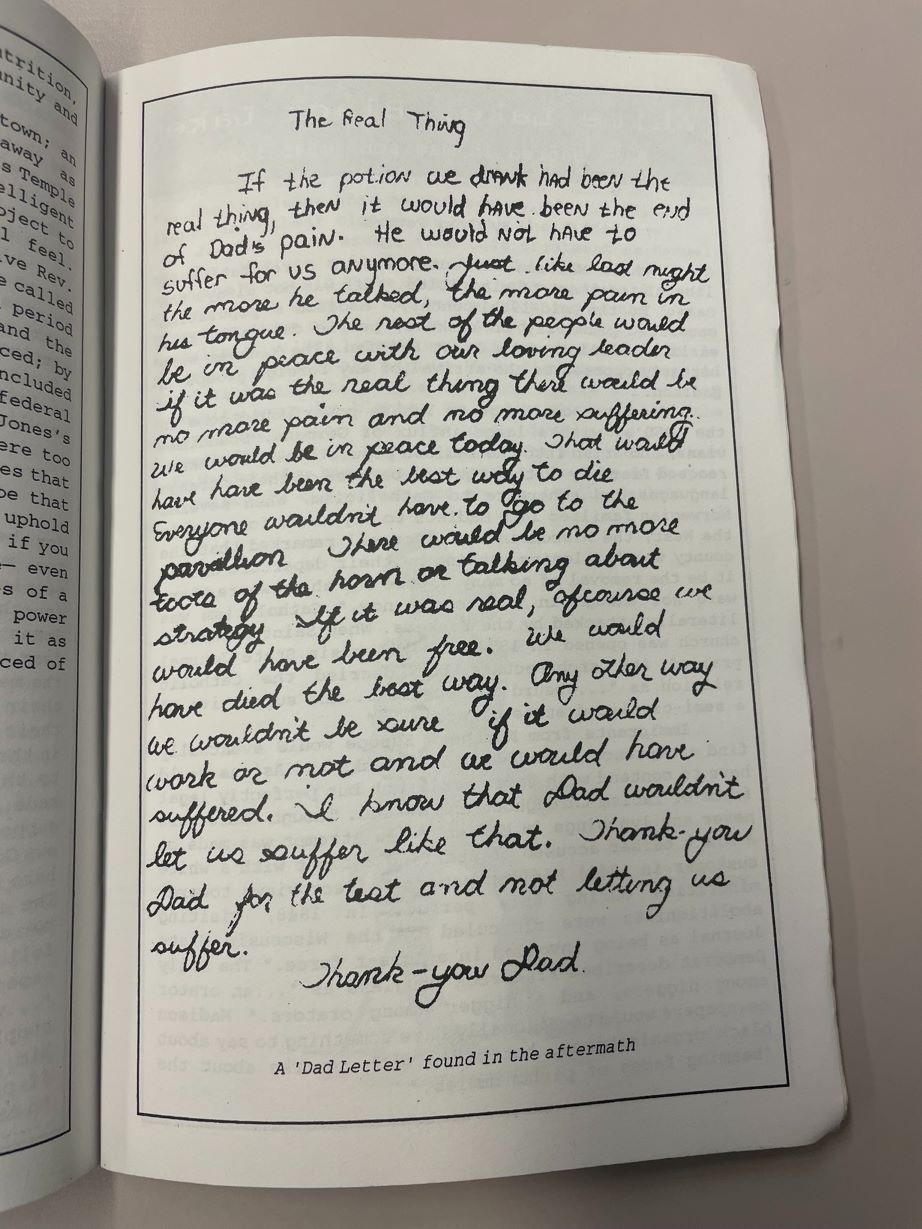 trition,
unity and
town; an
away as
s Temple
elligent
oject to
l feel.
ve Rev.
e called
period
and the
ced; by
ncluded
federal
Jones's
ere too
es that
pe that
uphold
if you
— even
s of a
power
it as
ced of
The Real Thing
If the potion we drank had been the
real thing, then it would have been the end
of Dad's pain. He would not have to
suffer for us anymore. Just like last night
the more he talked, the more pain in
his tongue. The rest of the people would
be in peace with our loving leader
if it was the real thing there would be
no more pain and no more suffering.
We would be in peace today. That would
have have been the best way to die
Everyone wouldn't have to go to the
pavillion There would be no more
toots of the horn or talking about
strategy If it was real, ofcourse we
would have been free. We would
have died the best way. Any other way
we wouldn't be sure if it would
work or not and we would have
suffered. I know that Dad wouldn't
let us suffer like that. Thank-you
Dad for the test and not letting us
suffer.
Thank-you Dad.
A 'Dad Letter' found in the aftermath